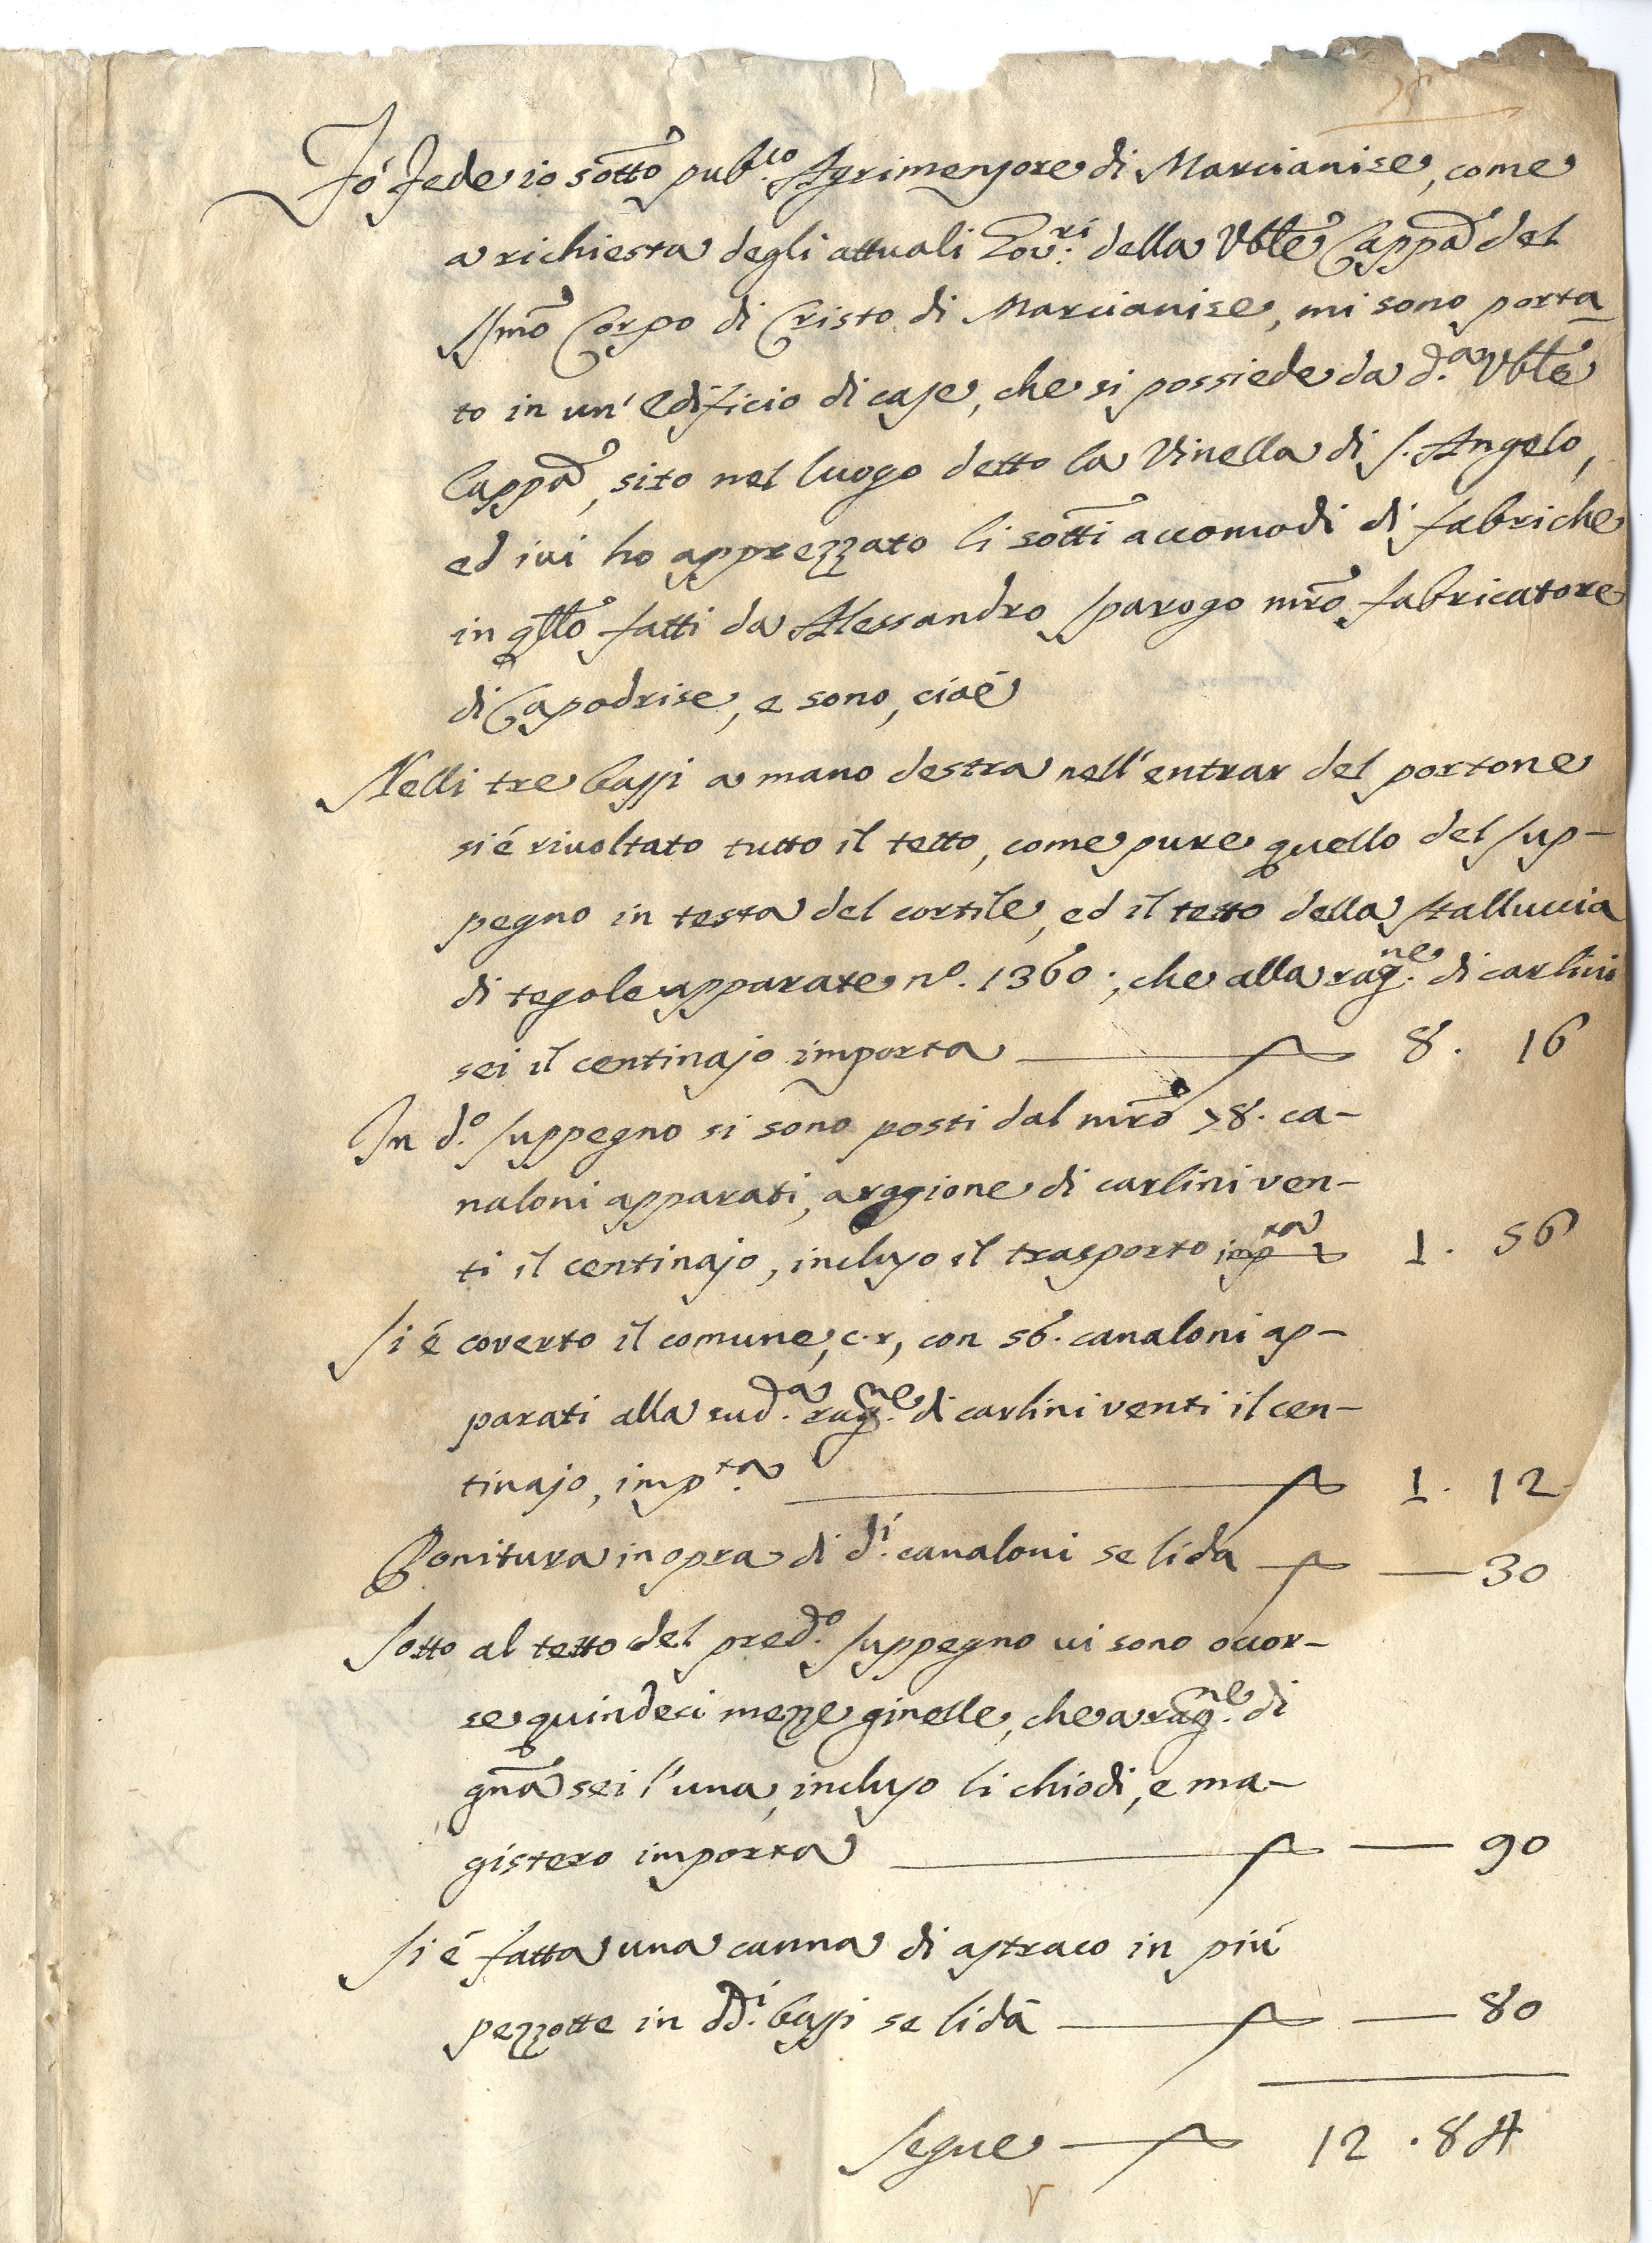 Fó fede io sotto pub.co Agrimensore di Marcianise, come
a richiesta degli attuali Gov.ri della Vble Cappa del
SSmo Corpo di Cristo di Marcianise, mi sono porta
to in un' edificio di case, che si possiede da d.a Vble
Cappa, sito nel luogo detto la Vinella di S. Angelo,
ed ivi ho apprezzato li sotti accomodi di fabriche
in qllo fatti da Alessandro Sparogo mro fabricatore
di Capodrise, e sono, cioé
Nelli tre bassi a mano destra nell' entrar del portone
si é rivoltato tutto il tetto, come pure quello del sup-
pegno in testa del cortile, ed il tetto della stalluccia
di tegole apparate no. 1360:, che alla rag.ne di carlini
sei il centinajo importa 8. 16
In d.o suppegno si sono posti dal mro 78. ca-
naloni apparati, a raggione di carlini ven-
ti il centinajo, incluso il trasporto imp.ta 1. 56
Si é coverto il comune, c.r, con 56. canaloni ap-
parati alla sud.a rag.ne di carlini venti il cen-
tinajo, imp.ta 1. 12
Ponitura in opra di d.i canaloni se li da — 30
Sotto al tetto del pred.o suppegno vi sono occor-
se quindeci mezze ginelle, che a rag.ne di
gna sei l' una, incluso li chiodi, e ma-
gistero importa — 90
Si é fatta una canna di astraco in piú
pezzotte in dd.i bassi se li da — 80
Segue 12. 84